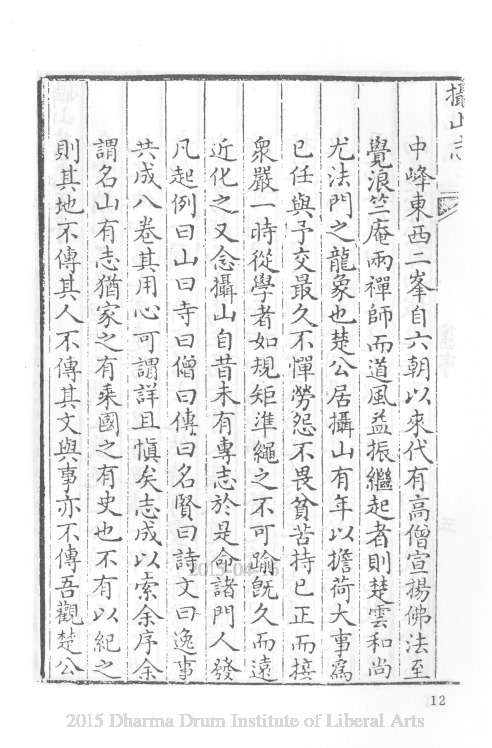 攝山志
中峰東西二峯自六朝以來代有高僧宣揚佛法至
覺浪竺庵兩禪師而道風益振繼起者則楚雲和尚
尤法門之龍象也楚公居攝山有年以擔荷大事爲
已任與予交最久不憚勞怨不畏貧苦持已正而接
衆嚴一時從學者如規矩準繩之不可踰旣久而遠
近化之又念攝山自昔未有專志於是命諸門人發
凡起例曰山曰寺曰僧曰傳曰名賢曰詩文曰逸事
共成八卷其用心可謂詳且愼矣志成以索余序余
謂名山有志猶家之有乘國之有史也不有以紀之
則其地不傳其人不傳其文與事亦不傳吾觀楚公
12
2015 Dharma Drum Institute of Liberal Arts